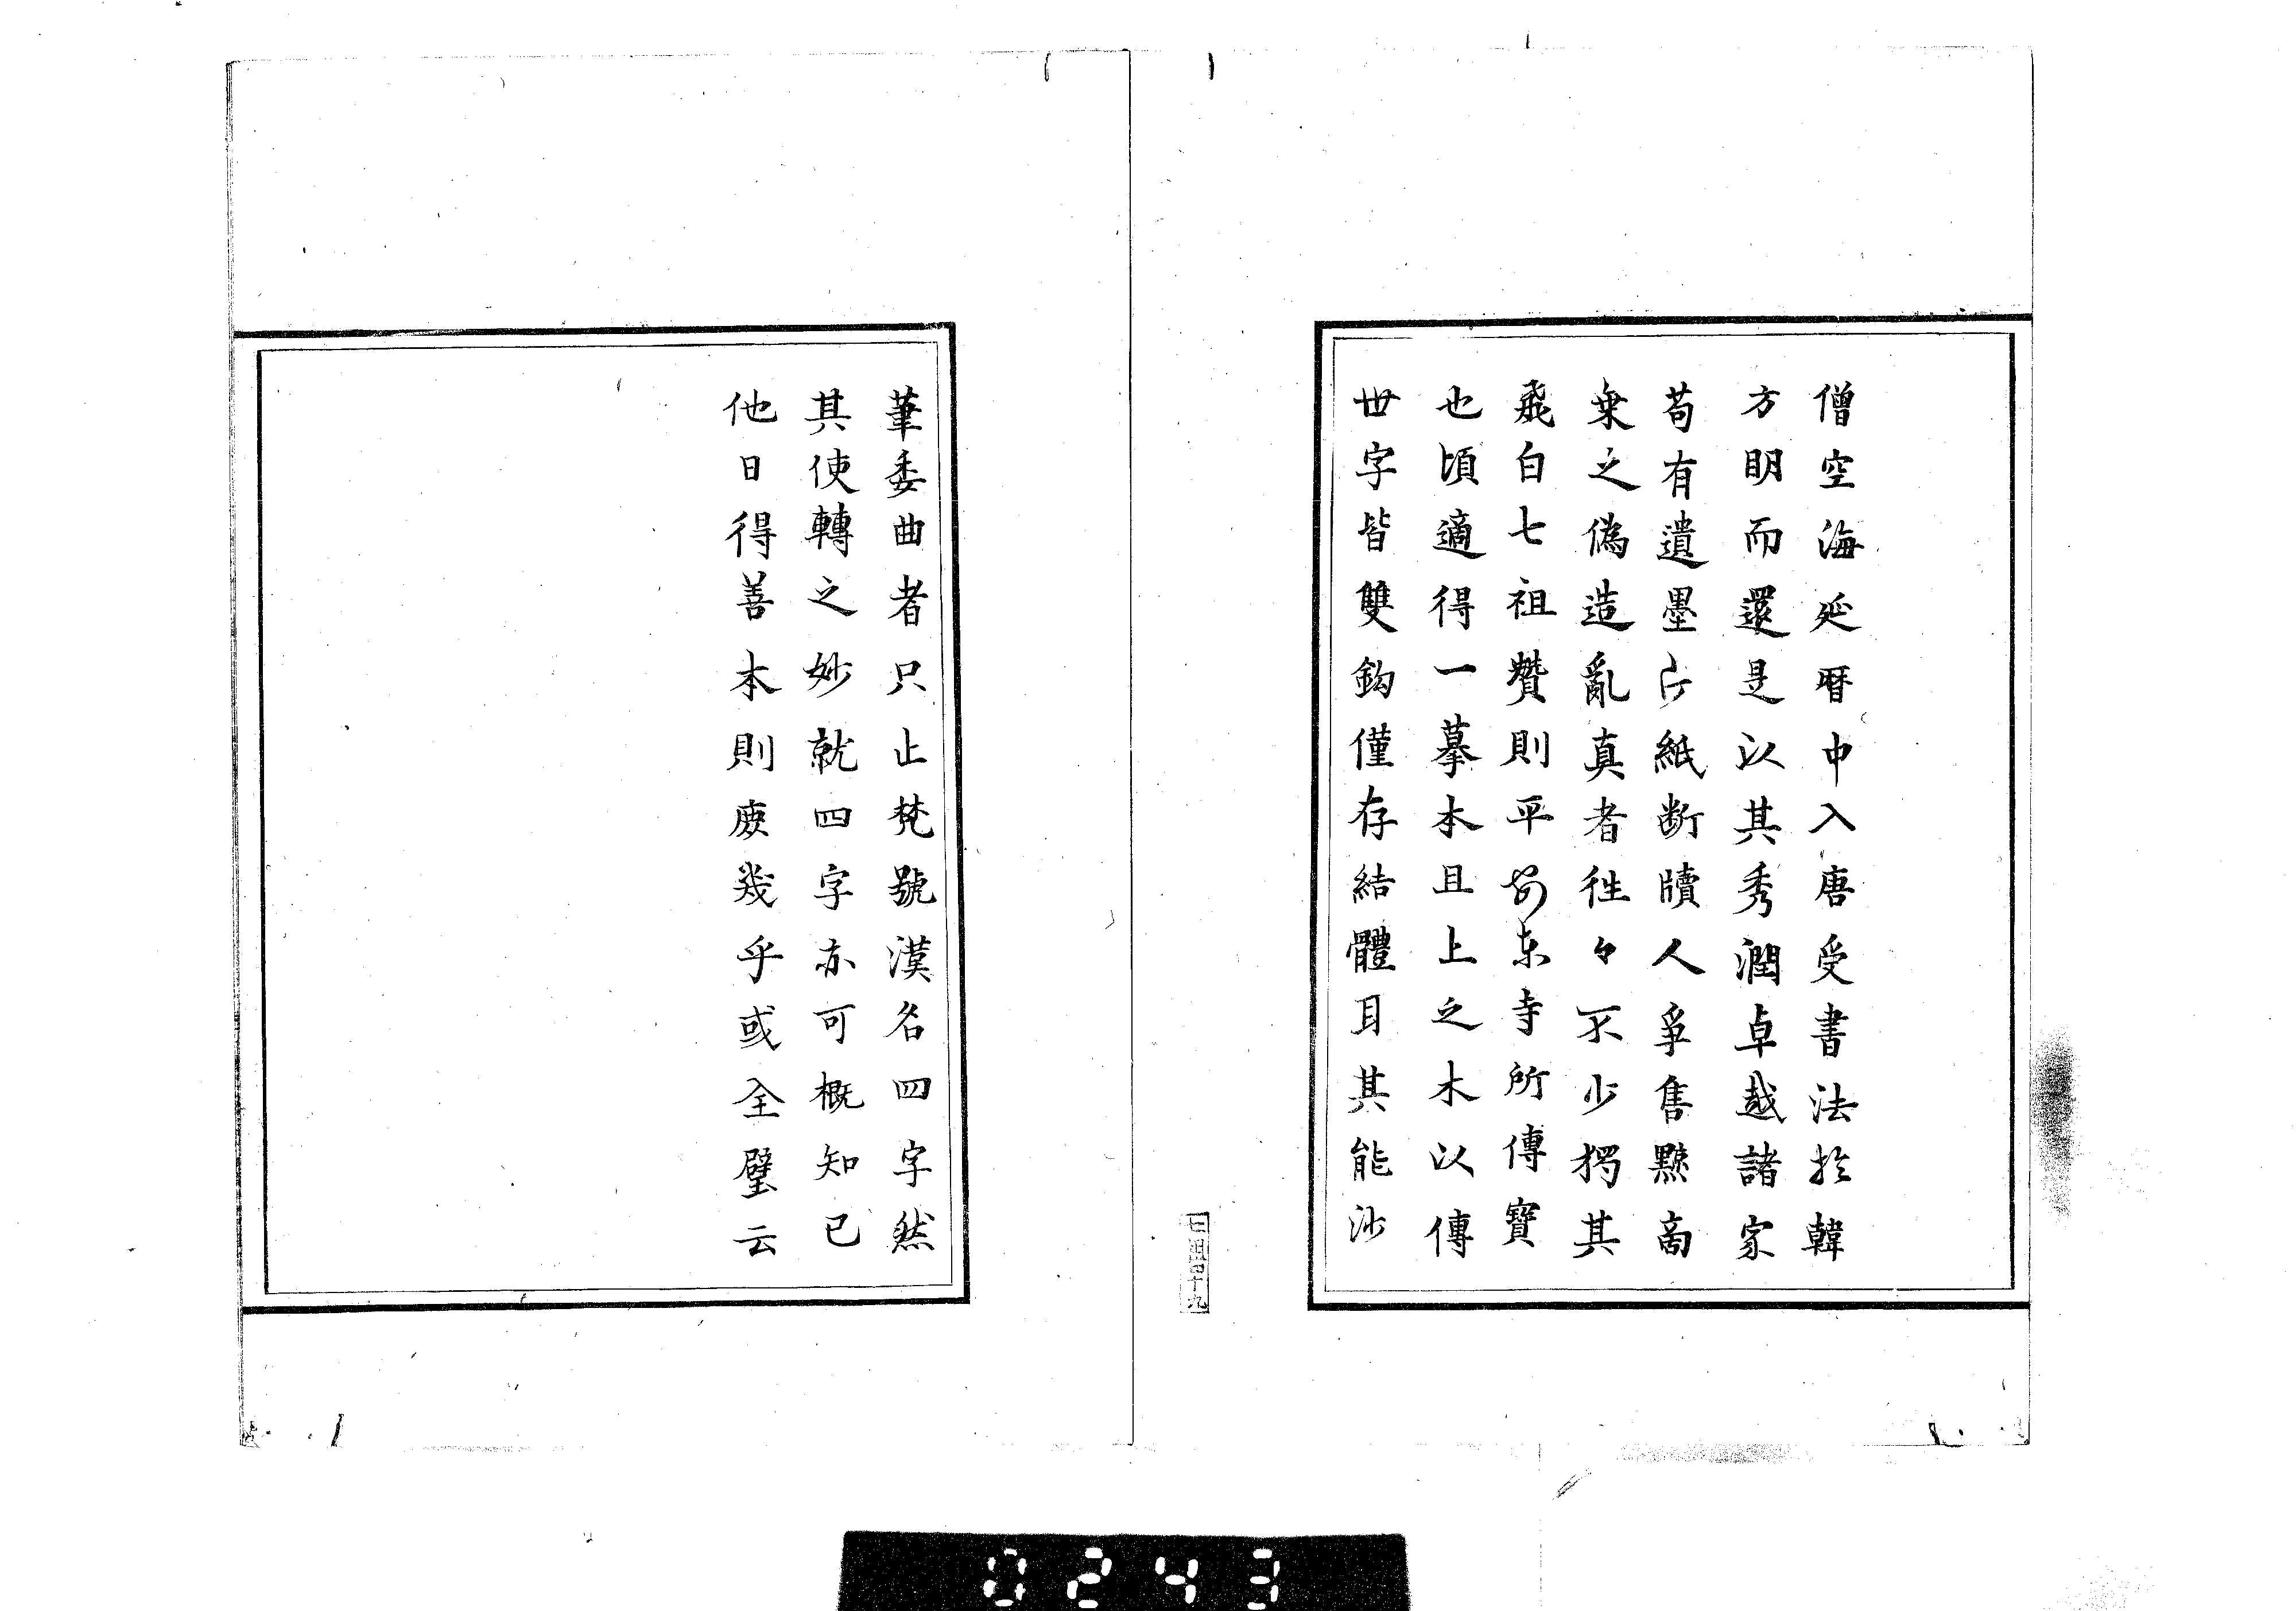 僧空海延暦中入唐受書法於韓
方明而還是以其秀潤卓越諸家
苟有遺墨片紙断牘人爭售黠商
乗之偽造亂真者徃々不少獨其
飛白七祖贊則平安東寺所傳寶
也頃適得一摹本且上之木以傳
世字皆雙鈎僅存結體耳其能沙
筆委曲者只止梵號漢名四字然
其使轉之妙就四字亦可概知已
他日得善本則庶幾乎或全璧云
七祖四十九
0243